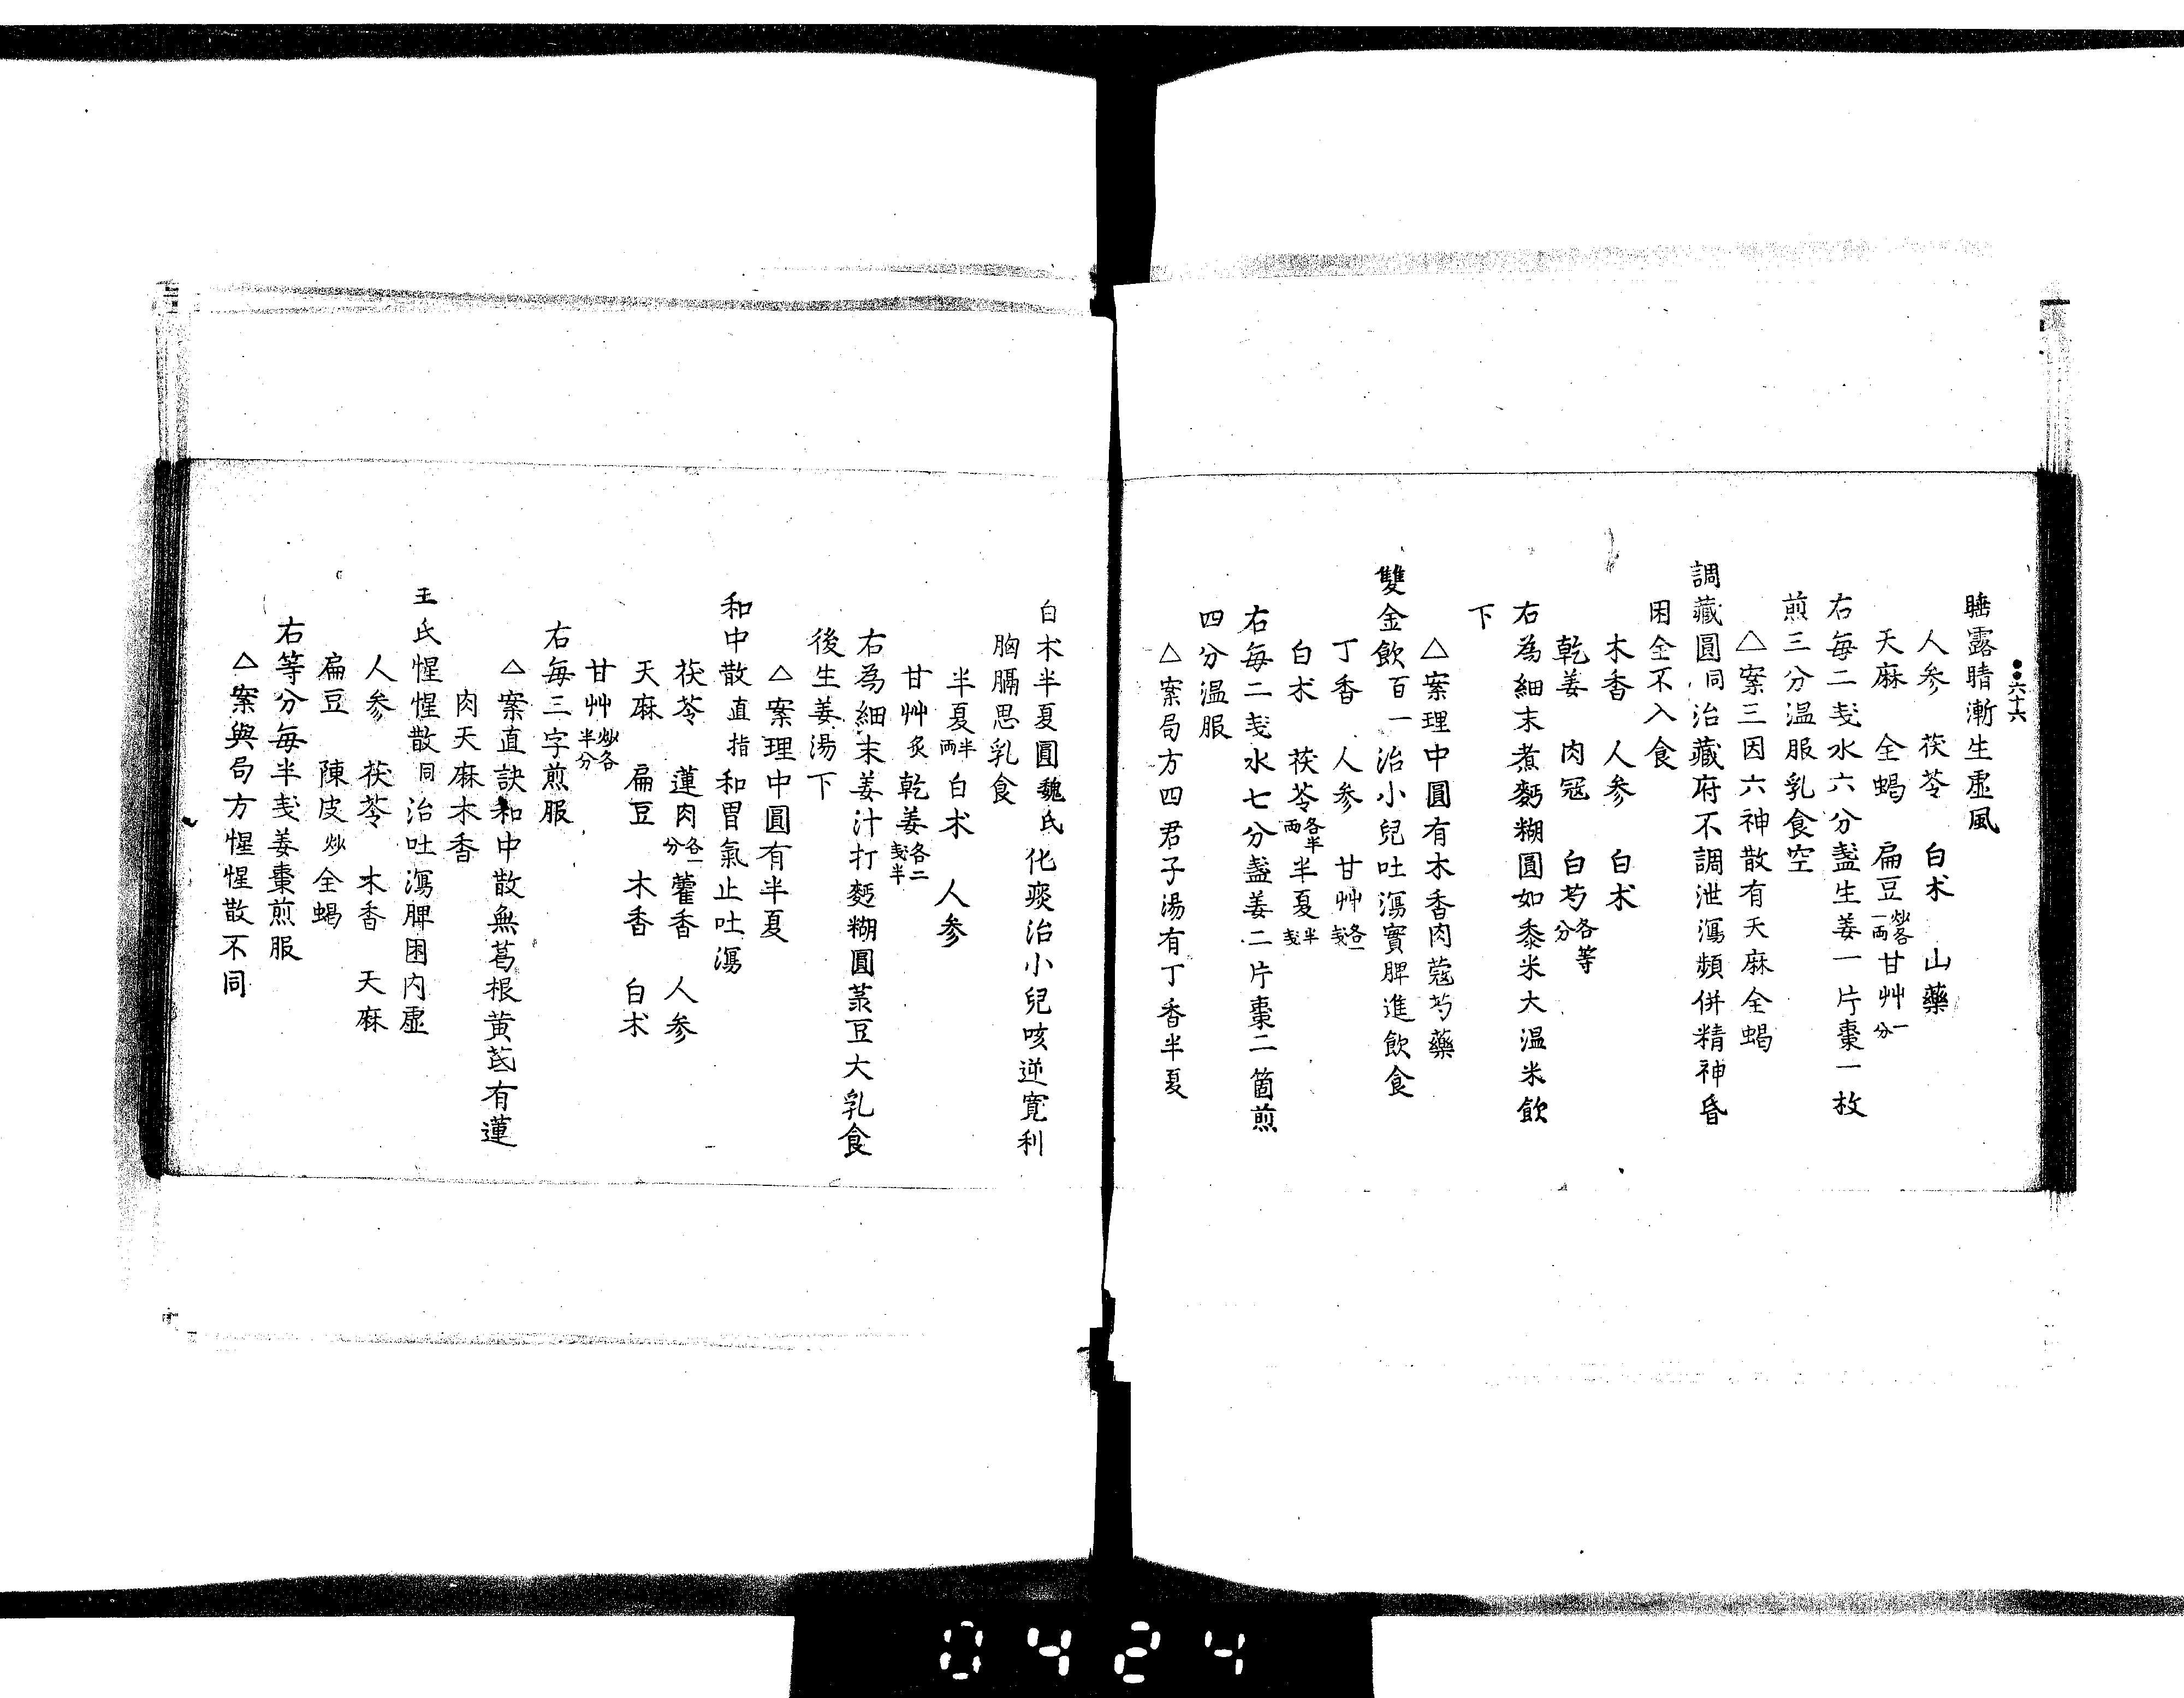 六十六
睡露睛漸生虛風
人参 茯苓 白朮 山藥
天麻 全蝎 扁豆炒各一兩甘艸一分
右每二戔水六分盞生姜一片棗一枚
煎三分温服乳食空
△案三因六神散有天麻全蝎
調藏圓同治藏府不調泄瀉頻併精神昏
困全不入食
木香 人参 白朮
乾姜 肉冦 白芍各等分
右為細末煮麪糊圓如黍米大温米飲
下
△案理中圓有木香肉蔻芍藥
雙金飲百一治小兒吐瀉實脾進飲食
丁香 人参 甘艸各一戔
白朮 茯苓各半兩半夏半戔
右每二戔水七分盞姜二片棗二箇煎
四分温服
△案局方四君子湯有丁香半夏
白朮半夏圓魏氏化痰治小兒咳逆寛利
胸膈思乳食
半夏半兩白朮 人参
甘艸炙乾姜各二戔半
右為細末姜汁打麪糊圓菉豆大乳食
後生姜湯下
△案理中圓有半夏
和中散直指和胃氣止吐瀉
茯苓 蓮肉各一分藿香 人参
天麻 扁豆 木香 白朮
甘艸炒各半分
右每三字煎服
△案直訣和中散無葛根黄茋有蓮
肉天麻木香
王氏惺惺散同治吐瀉脾困内虛
人参 茯苓 木香 天麻
扁豆 陳皮炒全蝎
右等分每半戔姜棗煎服
△案與局方惺惺散不同
0424